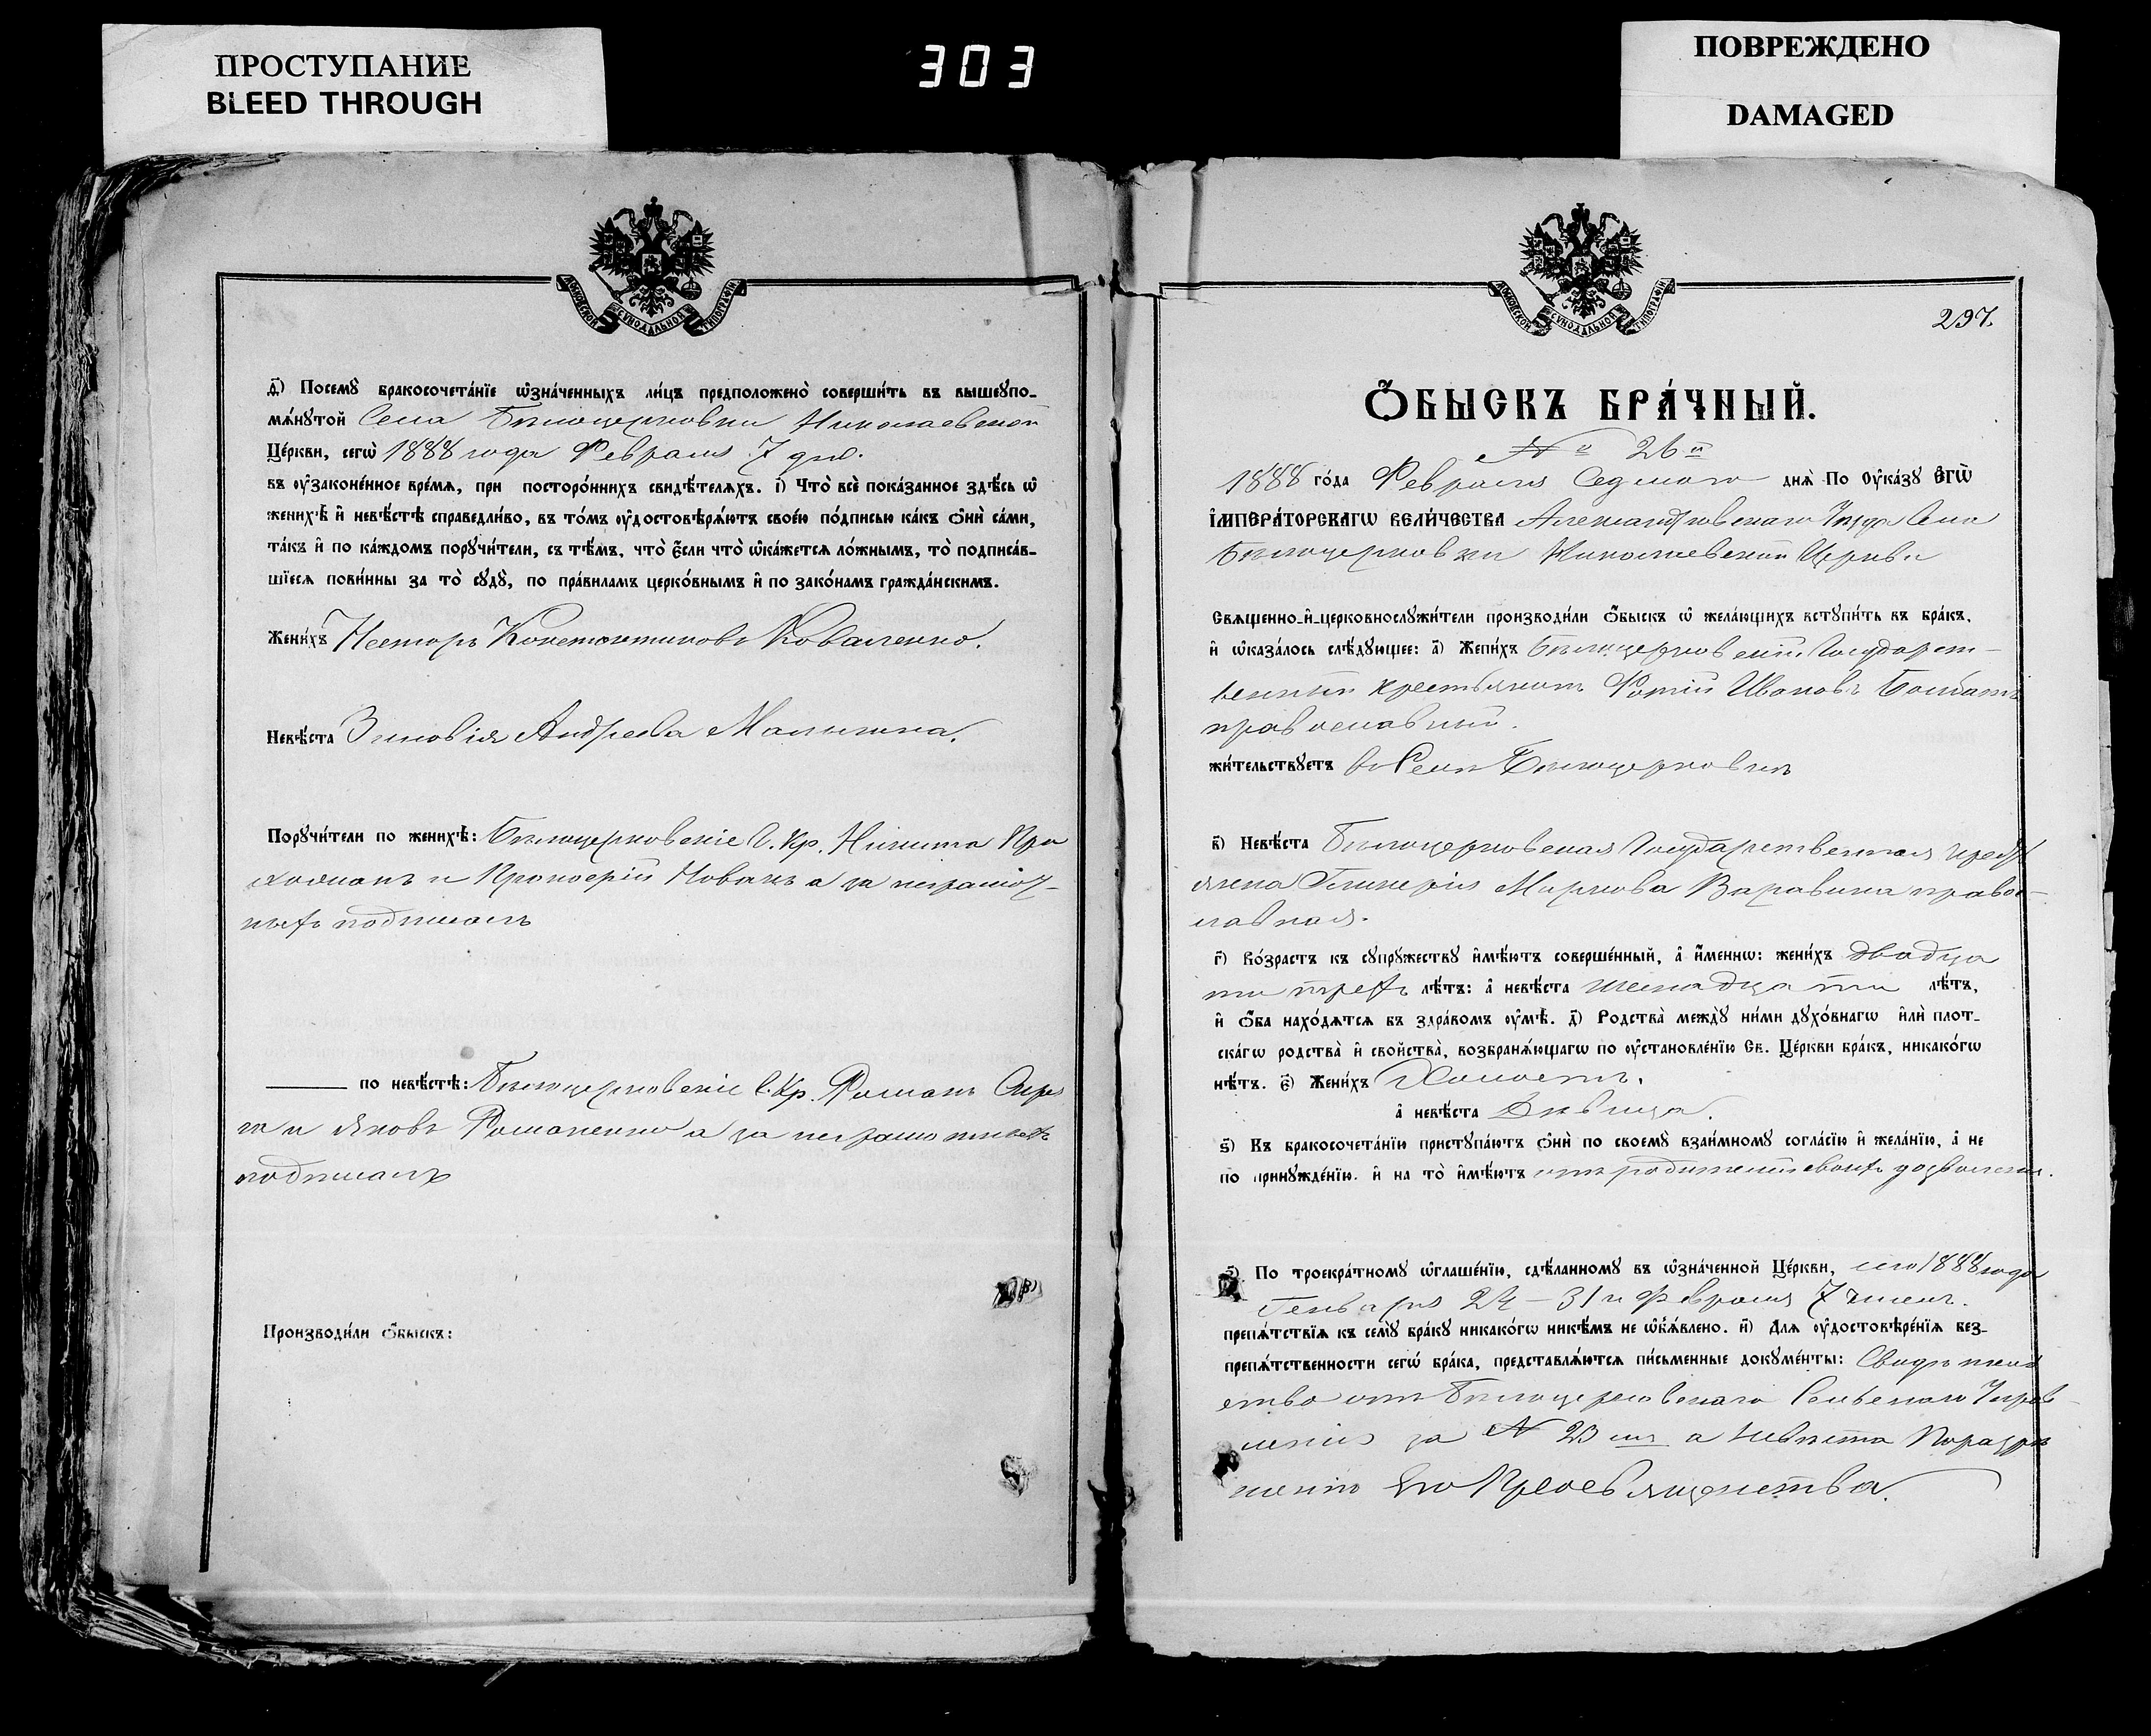 ПРОСТУПАНИЕ
BLEED THROUGH
303
ПОВРЕЖДЕНО
DAMAGED
МОСКОВСКОЙ СѴНОДАЛЬНОЙ ТИПОГРАФІИ
д҃) Посемꙋ̀ бракосочета́нїе ѡ҆зна́ченныхъ ли́цъ предположено̀ соверши́ть въ вышеꙋпо-
мѧ́нꙋтой Села Бѣлоцерковки Николаевской
Це́ркви, сегѡ̀ 1888 года Февраля 7 дня.
въ ᲂу҆зако́ненное вре́мѧ, при посторо́ннихъ свидѣ́телѧхъ. і҃) Что̀ всѐ пока́занное здѣ́сь ѡ҆
женихѣ̀ и҆ невѣ́стѣ справедли́во, въ то́мъ ᲂу҆достовѣрѧ́ютъ свое́ю по́дписью ка́къ ѻ҆нѝ са́ми,
та́къ и҆ по ка́ждомъ порꙋчи́тели, съ тѣ́мъ, что̀ є҆́сли что̀ ѡ҆ка́жетсѧ ло́жнымъ, то̀ подписа́в-
шїесѧ пови́нны за то̀ сꙋдꙋ̀, по пра́виламъ церко́внымъ и҆ по зако́намъ гражда́нскимъ.
Жени́хъ Несторъ Константиновъ Коваленко.
Невѣ́ста Зиновія Андреева Малыхина.
Порꙋчи́тели по женихѣ̀: Бѣлоцерковскіе Г. Кр. Никита Про
и Прокофій Новакъ а за неграмот-
ныхъ подписалъ
по невѣ́стѣ: Бѣлоцерковскіе Г. Кр. Романъ Сиро
та и Яковъ Романенко а за неграмотныхъ
подписалъ
Производи́ли ѻ҆́быскъ:
МОСКОВСКОЙ СѴНОДАЛЬНОЙ ТИПОГРАФІИ
297.
Ѻ҆́БЫСКЪ БРА́ЧНЫЙ.
№ 26й
1888 го́да Февраля Седмаго днѧ̀ По Оу҆ка́зꙋ Є҆ГѠ̀
І҆МПЕРА́ТОРСКАГѠ ВЕЛИ́ЧЕСТВА Александровскаго Уѣзда Села
Бѣлоцерковки Николаевской Церкви
Свѧще́нно-и҆-церковнослꙋжи́тели производи́ли ѻ҆́быскъ ѡ҆ жела́ющихъ встꙋпи́ть въ бра́къ,
и҆ ѡ҆каза́лось слѣ́дꙋющее: а҃) Жени́хъ Бѣлоцерковскій Государст-
венный крестьянинъ Фотій Ивановъ
православный.
жи́тельствꙋетъ въ Селѣ Бѣлоцерковкѣ
в҃) Невѣ́ста Бѣлоцерковская Государственная кресть
янка Гликерія Маркова Варавина право-
славная.
г҃) Во́зрастъ къ сꙋпрꙋ́жествꙋ и҆мѣ́ютъ соверше́нный, а҆ и҆́меннѡ: жени́хъ двадца
ти трехъ лѣ́тъ: а҆ невѣ́ста шеснадцати лѣ́тъ,
и҆ ѻ҆́ба нахо́дѧтсѧ въ здра́вомъ ᲂу҆мѣ̀. д҃) Родства̀ междꙋ̀ ни́ми дꙋхо́внагѡ и҆лѝ плот-
ска́гѡ родства̀ и҆ сво́йства, возбранѧ́ющагѡ по ᲂу҆становле́нїю Св. Це́ркви бра́къ, никако́гѡ
нѣ́тъ. є҃) Жени́хъ Холостъ.
а҆ невѣ́ста Дѣвица.
ѕ҃) Къ бракосочета́нїю пристꙋпа́ютъ ѻ҆нѝ по своемꙋ̀ взаи́мномꙋ согла́сїю и҆ жела́нїю, а҆ не
по принꙋжде́нїю. и҆ на то̀ и҆мѣ́ютъ отъ родителей своихъ дозволеніе.
з҃) По троекра́тномꙋ ѡ҆глаше́нїю, сдѣ́ланномꙋ въ ѡ҆зна́ченной Це́ркви, сего 1888 года
Генваря 24 – 31 и Февраля 7 чисел.
препѧ́тствїѧ къ семꙋ̀ бра́кꙋ никако́гѡ никѣ́мъ не ѡ҆б̾ѧ́влено. и҃) Длѧ ᲂу҆достовѣре́нїѧ без-
препѧ́тственности сегѡ̀ бра́ка, представлѧ́ютсѧ пи́сьменные докꙋме́нты: Свидѣтель
ство отъ Бѣлоцерковскаго Сельскаго Управ-
ленія за № 23 а невѣста По разрѣ
шенію Его Преосвященства.